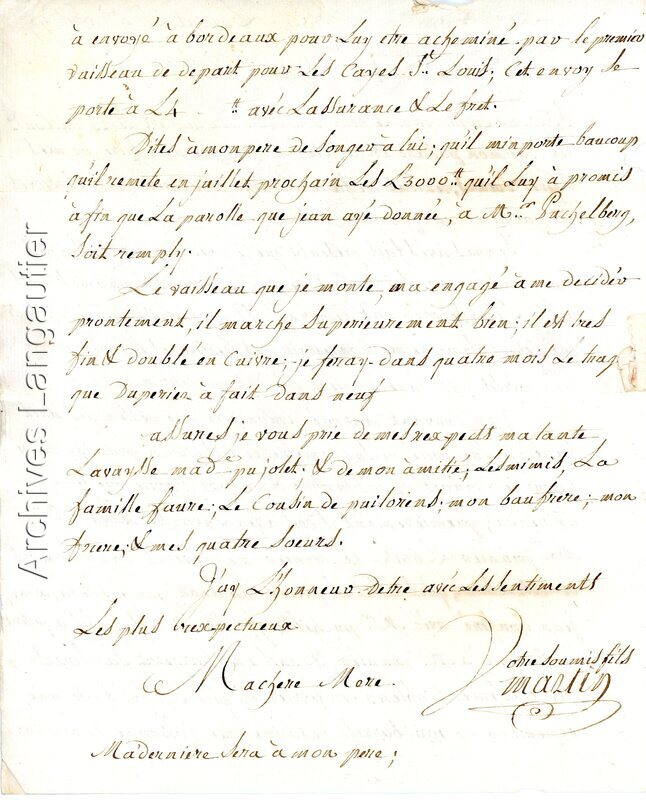 à envoyé à bordeaux pour Luy etre acheminé par le premier
vaisseau de depart pour Les Cayes St. Louis; Cet envoy se
porte à L4 tt avéc Lassurance & Le fret.
Dites à mon pere de songer à lui; qu'il min porte baucoup
qu'il remete en juillet prochain Les L3000 tt qu'il Luy à promis
à fin que La parolle que jean ayé donnée, à Mr. Puchelberg,
soit remply.
Le vaisseau que je monte, ma engagé à me decidér
prontement, il marche superieurement bien; il est tres
fin & doublé en Cuivre; je feray dans quatre mois Le traj
que Duperier à fait dans neuf
assures je vous prie de mes rexpects ma tante
Lavaysse made pujolet, & de mon àmitié; Les mimis, La
famille faure; Le Cousin de puilorens; mon baufrere; mon
frere; & mes quatre soeurs.
J'ay L'honneur detre avéc Les sentiments
Les plus rexpectueux
Machere Mere.
Votre soumis fils
martin
Ma derniere sera à mon pere;
Archives Langautier